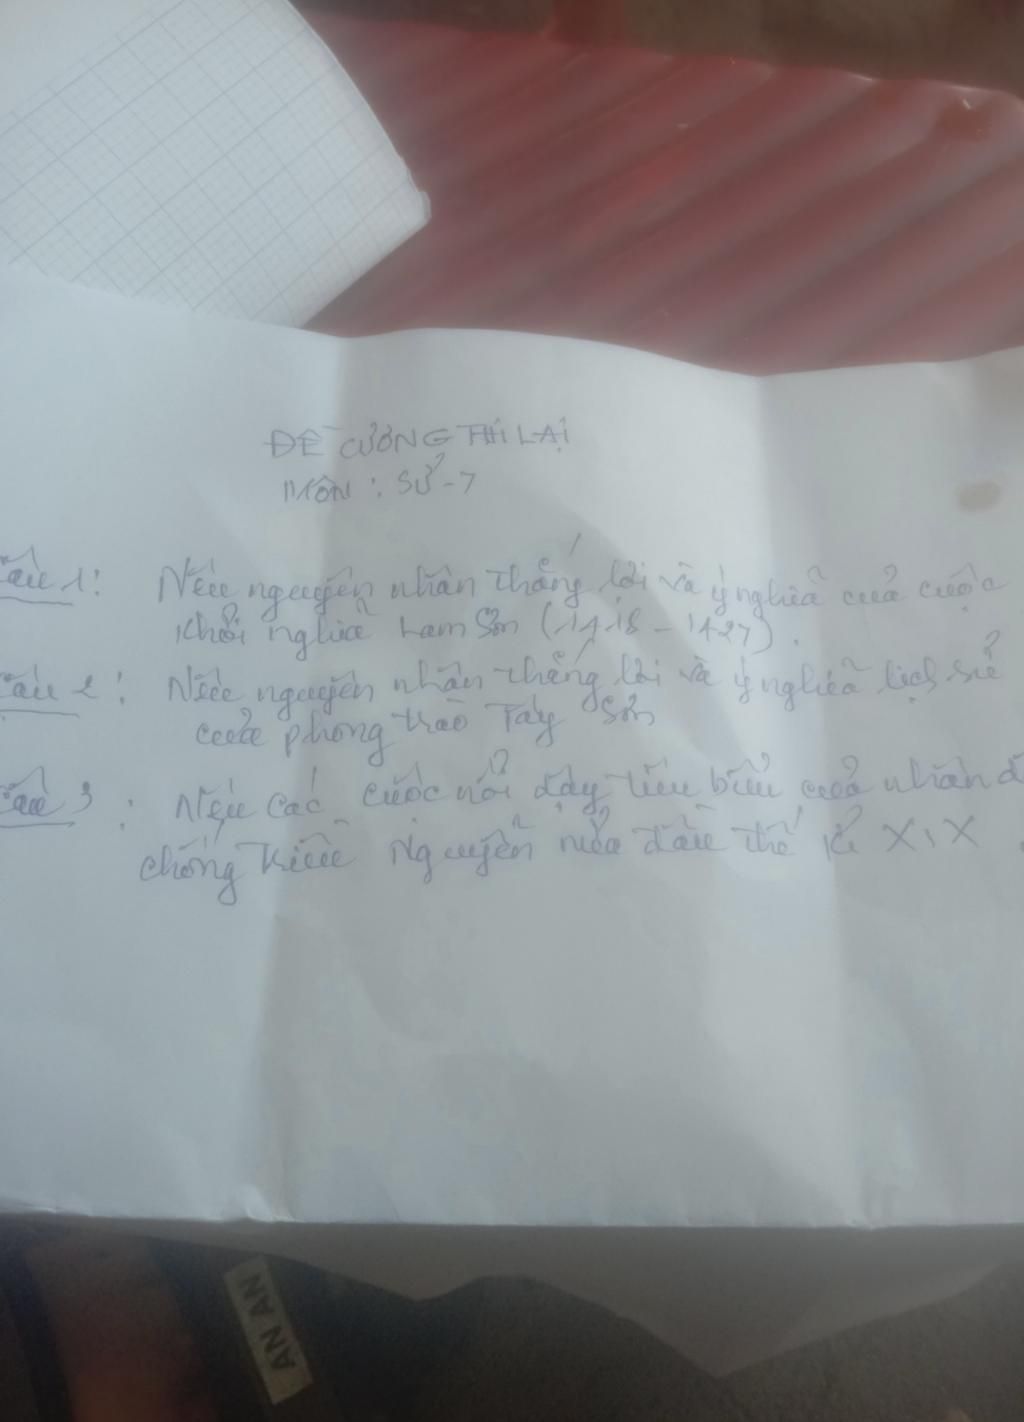 ĐỀ CƯƠNG THI LẠI
MÔN : SỬ - 7
Câu 1: Nêu nguyên nhân thắng lợi và ý nghĩa của cuộc
khởi nghĩa Lam Sơn (1418 - 1427).
Câu 2: Nêu nguyên nhân thắng lợi và ý nghĩa lịch sử
của phong trào Tây Sơn
Câu 3: Nêu các cuộc nổi dậy tiêu biểu của nhân d
chống triều Nguyễn nửa đầu thế kỉ XIX.
AN AN